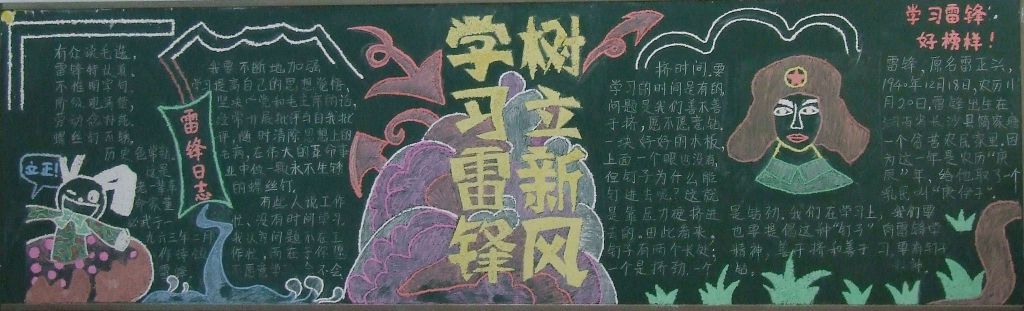 学习雷锋
树立新风
学习雷锋：
好榜样！
雷锋日志
立正！
有众谈毛选，
雷锋特认真。
不惟明字句，
阶级观满营，
螺丝钉不锈，
历史色常新。
我要不断地加强
学习，提高自己的思想觉悟，
坚决听党和毛主席的话，
经常开展批评与自我批
评，随时清除思想上的
毛病，在伟大的革命事
业中做一颗永不生锈
的螺丝钉。
有些人说工作
忙、没有时间学习
我认为问题不在工
作忙，而在于你愿
不愿意学习，会不会
挤时间。要
学习的时间是有的
问题是我们善不善
于挤，愿不愿意钻。
一块好好的木板，
上面一个眼也没有，
但钉子为什么能
钉进去呢？这就
是靠压力硬挤进
去的。由此看来，
钉子有两个长处：
一个是挤劲，一个
是钻劲。我们在学习上，
也要提倡这种“钉子”
精神，善于挤和善于
钻。
雷锋，原名雷正兴，
1940年12月18日，农历11
月20日。雷锋出生在
湖南省长沙县简家塘
一个贫苦农民家里。因
为这一年是农历“庚
辰”年，给他取了一个
乳名，叫“庚伢子”。
我们要
向雷锋学
习，要有钉子
精神。